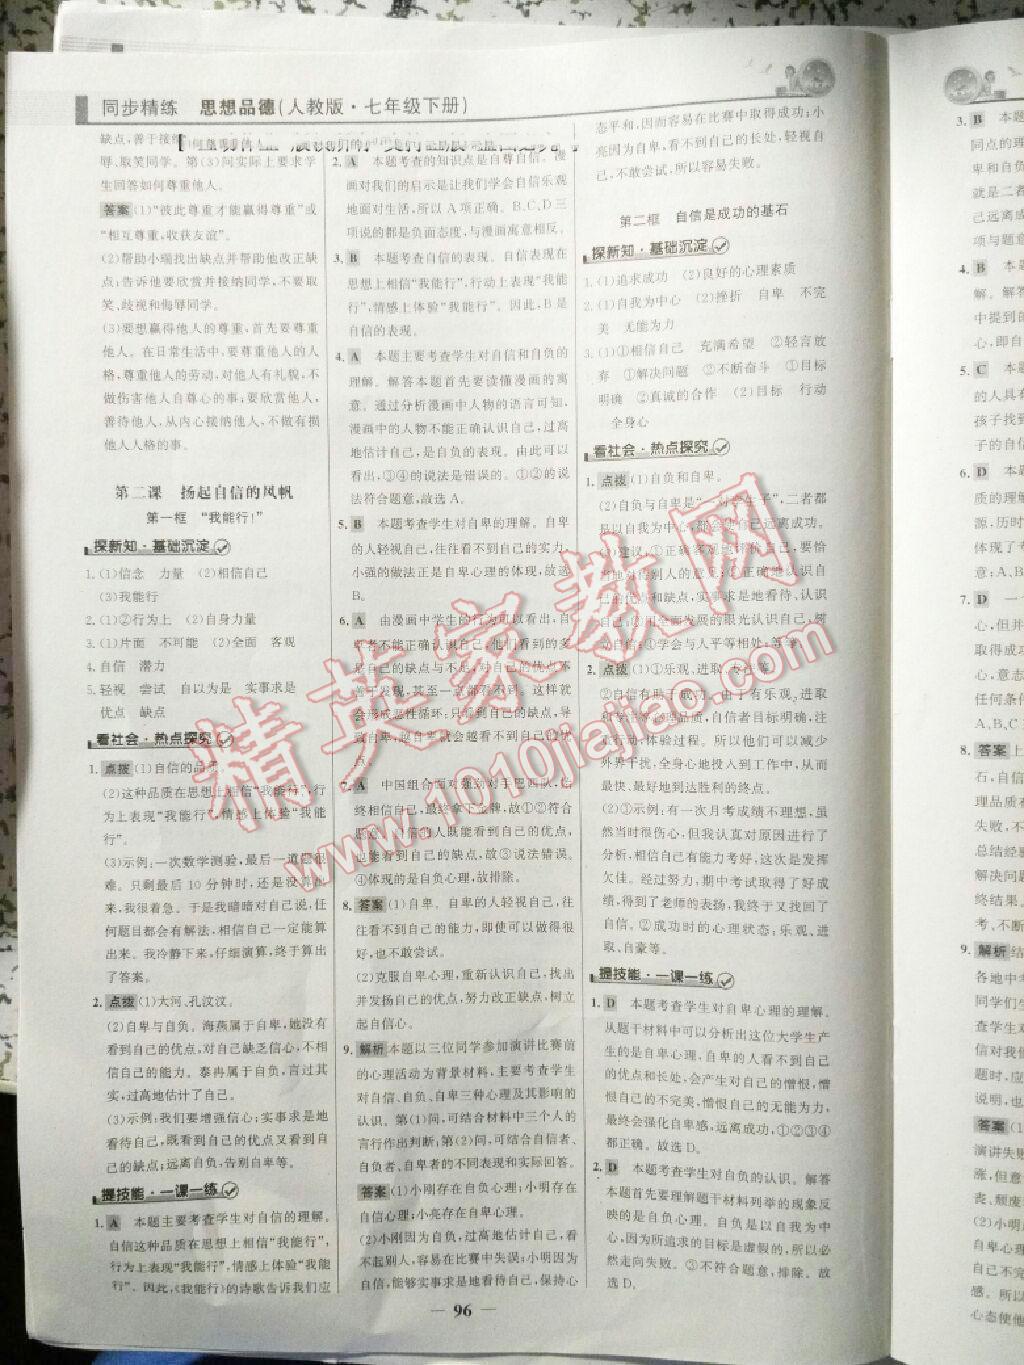 同步精练 思想品德(人教版·七年级下册)
缺点,善于接纳
辱、取笑同学。第(3)问实际上要求学
生回答如何尊重他人。
答案 (1)“彼此尊重才能赢得尊重”或
“相互尊重,收获友谊”。
(2)帮助小瑞找出缺点并帮助他改正缺
点;告诉他要欣赏并接纳同学,不要取
笑、歧视和侮辱同学。
(3)要想赢得他人的尊重,首先要尊重
他人。在日常生活中,要尊重他人的人
格,尊重他人的劳动,对他人有礼貌,不
做伤害他人自尊心的事;要欣赏他人,
善待他人,从内心接纳他人,不做有损
他人人格的事。
第二课 扬起自信的风帆
第一框 “我能行!”
探新知·基础沉淀
1.(1)信念 力量 (2)相信自己
(3)我能行
2.(1)②行为上 (2)自身力量
3.(1)片面 不可能 (2)全面 客观
4.自信 潜力
5.轻视 尝试 自以为是 实事求是
优点 缺点
看社会·热点探究
1. 点拨 (1)自信的品质。
(2)这种品质在思想上相信“我能行”,行
为上表现“我能行”,情感上体验“我能
行”。
(3)示例:一次数学测验,最后一道题很
难。只剩最后10分钟时,还是没算出
来,我很着急。于是我暗暗对自己说,任
何题目都会有解法,相信自己一定能算
出来。我冷静下来,仔细演算,终于算出
了答案。
2. 点拨 (1)大河、孔汶汶。
(2)自卑与自负。海燕属于自卑,她没有
看到自己的优点,对自己缺乏信心,不相
信自己的能力。泰冉属于自负,言过其
实,过高地估计了自己。
(3)示例:我们要增强信心;实事求是地
看待自己,既看到自己的优点又看到自
己的缺点;远离自负,告别自卑等。
提技能·一课一练
1. A 本题主要考查学生对自信的理解。
自信这种品质在思想上相信“我能行”,
行为上表现“我能行”,情感上体验“我能
行”。因此,《我能行》的诗歌告诉我们应
2. A 本题考查的知识点是自信。漫
画对我们的启示是让我们学会自信乐观
地面对生活,所以A项正确。B、C、D三
项说的都是负面态度,与漫画寓意相反。
3. B 本题考查自信的表现。自信表现在
思想上相信“我能行”,行动上表现“我能
行”,情感上体验“我能行”。因此,B是
自信的表现。
4. A 本题主要考查学生对自信和自负的
理解。解答本题首先要读懂漫画的寓
意。通过分析漫画中人物的语言可知,
漫画中的人物不能正确认识自己,过高
地估计自己,是自负的表现。由此可以
看出,③④的说法是错误的。①②的说
法符合题意,故选A。
5. B 本题考查学生对自卑的理解。自卑
的人轻视自己,往往看不到自己的实力,
小强的做法正是自卑心理的体现,故选
B。
6. A 由漫画中学生的行为可以看出,自
卑者不能正确认识自己,他们看到的多
是自己的缺点与不足,对自己的优点不
善于发现,甚至一点都看不到。这样就
会形成恶性循环:只看到自己的缺点,导
致自卑,越自卑就会越看不到自己的优
点。
7. A 中国组合面对强劲对手巴西队,始
终相信自己,最终拿下金牌,故①②符合
题意。自信的人既能看到自己的优点,
也能看到自己的缺点,故③说法错误。
④体现的是自负心理,故排除。
8. 答案 (1)自卑。自卑的人轻视自己,往
往看不到自己的能力,即使可以做得很
好,也不敢尝试。
(2)克服自卑心理,重新认识自己,找出
并发扬自己的优点,努力改正缺点,树立
起自信心。
9. 解析 本题以三位同学参加演讲比赛前
的心理活动为背景材料,主要考查学生
对自信、自负、自卑三种心理及其影响的
认识。第(1)问,可结合材料中三个人的
言行作出判断;第(2)问,可结合自信者、
自负者、自卑者的不同表现和实际回答。
答案 (1)小刚存在自负心理;小明存在
自信心理;小亮存在自卑心理。
(2)小刚因为自负,过高地估计自己,看
不起别人,容易在比赛中失误;小明因为
自信,能够实事求是地看待自己,保持心
态平和,因而容易在比赛中取得成功;小
亮因为自卑,看不到自己的长处,轻视自
己,不敢尝试,所以容易失败。
第二框 自信是成功的基石
探新知·基础沉淀
1.(1)追求成功 (2)良好的心理素质
2.(1)自我为中心 (2)挫折 自卑 不完
美 无能为力
3.(1)①相信自己 充满希望 ②轻言放
弃 ①解决问题 ②不断奋斗 ①目标
明确 ②真诚的合作 (2)目标 行动
全身心
看社会·热点探究
1. 点拨 (1)自负和自卑。
(2)自负与自卑是“一对孪生子”,二者都
是以自我为中心,都会使自己远离成功。
(3)建议:①正确客观地评价自己,要恰
当地对待别人的意见;②正确地认识自
己的优点和缺点,实事求是地看待、认识
自己;③用全面发展的眼光认识自己,帮
助自信;④学会与人平等相处;等等。
2. 点拨 (1)①乐观、进取、专注等。
②自信有助于成功。由于有乐观、进取
和专注等心理品质,自信者目标明确,注
重行动,体验过程。所以他们可以减少
外界干扰,全身心地投入到工作中,从而
最快、最好地到达胜利的终点。
(2)③示例:有一次月考成绩不理想,虽
然当时很伤心,但我认真对原因进行了
分析,相信自己有能力考好,这次是发挥
欠佳。经过努力,期中考试取得了好成
绩,得到了老师的表扬,我终于又找回了
自信。②成功时的心理状态:乐观、进
取、自豪等。
提技能·一课一练
1. D 本题考查学生对自卑心理的理解。
从题干材料中可以分析出这位大学生产
生的是自卑心理,自卑的人看不到自己
的优点和长处,会产生对自己的憎恨,憎
恨自己的不完美,憎恨自己的无能为力,
最终会强化自卑感,远离成功,①②③④
都正确。故选D。
2. D 本题考查学生对自负的认识。解答
本题首先要理解题干材料列举的现象反
映的是自负心理。自负是以自我为中
心,因为所追求的目标是虚假的,所以必
然走向失败。③不符合题意,排除。故
选D。
— 96 —
3. B 本题
同点的理
卑和自负
就是二者
己远离成
项与题意
4. B 本题
解。解答
中提到的
心,即自
5. C 本题
的人具有
孩子找到
子的自信
6. D 本题
质的理解
源,历史
体现了
意;A、
7. D 一个
心,但并
取得成功
心,意志
任何条件
A、B、C
8. 答案
石,自信
理品质在
失败,不
总结经验
解决问题
终结果。
考、不断
9. 解析 结
各地中考
同学们生
查学生对
信对我们
题时,应
说明,也
答案 (1
演讲失败
涨,但意
丧、颓废
(2)小明
自卑心理
自己不完
感。所以
心态使他
精英家教网
www.1010jiajiao.com